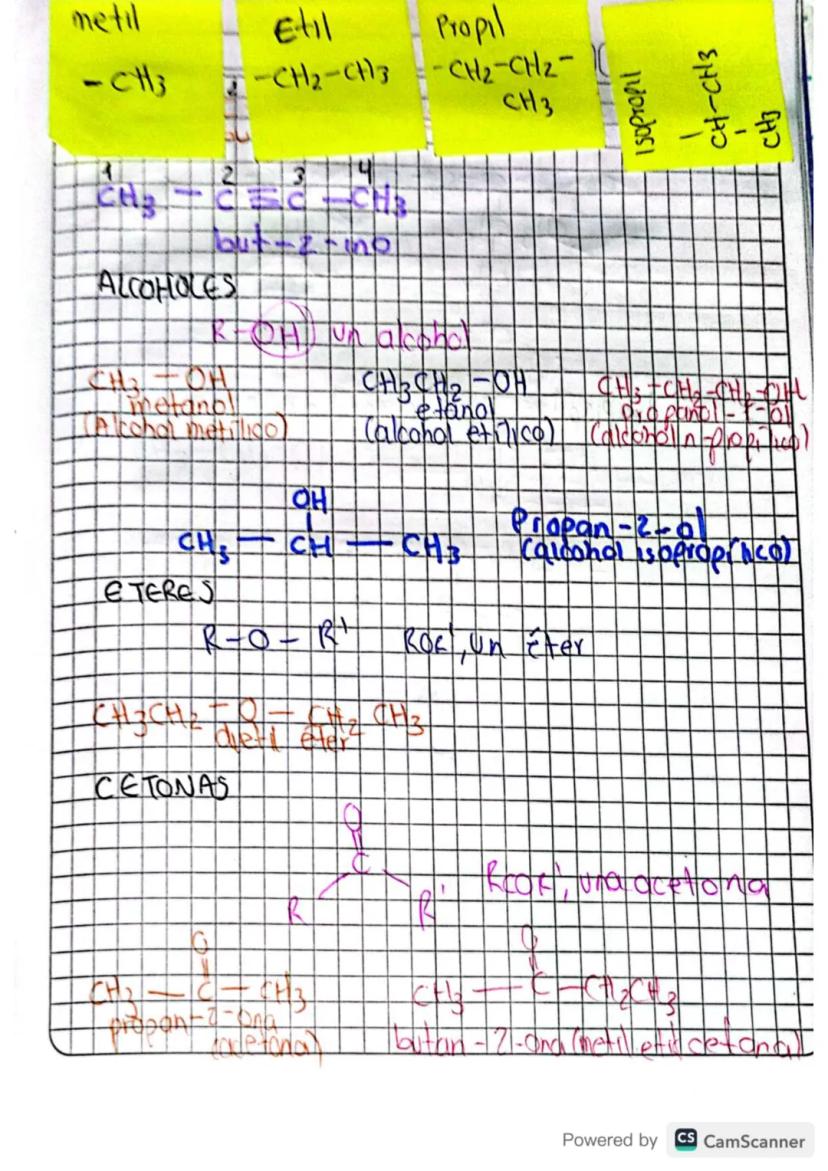 metil
-CH3
Etil
-CH2-CH3
Propil
-CH2-CH2-
CH3
Isopropil
CH-CH3
CH3
1 2 3 4
CH3 - C ≡ C - CH3
but-2-ino
ALCOHOLES
R-OH un alcohol
CH3 - OH
metanol
(Alcohol metílico)
CH3CH2-OH
etanol
(alcohol etílico)
CH3-CH2-CH2-OH
propanol-1-ol
(alcohol n-propílico)
OH
CH3 - CH - CH3
Propan-2-ol
(alcohol isopropílico)
ETERES
R-O-R' ROR', un éter
CH3CH2-O-CH2CH3
dietil éter
CETONAS
O
C
R R'
RCOR', una acetona
O
CH3 - C - CH3
propan-2-ona
(acetona)
O
CH3 - C - CH2CH3
butan-2-ona (metil etil cetona)
Powered by CS CamScanner